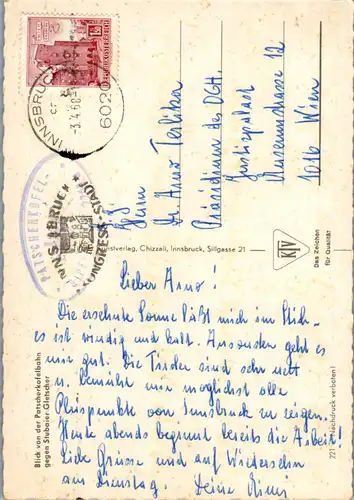 Blick von der Patscherkofelbahn
gegen Stubaier Gletscher
INNSBRUCK
6020
-3.4.68
REPUBLIK ÖSTERREICH
INNSBRUCK
KONGRESS-STADT
PATSCHERKOFEL-
Kunstverlag, Chizzali, Innsbruck, Sillgasse 21
KTV
Das Zeichen
für Qualität
221
Nachdruck verboten!
Herrn
Dr. Arno
Präsidenten des OGH.
Justizpalast
Museumstrasse 12
1016 Wien
Lieber Arno!
Die ersehnte Sonne läßt mich im Stich -
es ist windig und kalt. Ansonsten geht es
mir gut. Die Tiroler sind sehr nett
u. bemüht mir möglichst alle
Pluspunkte von Innsbruck zu zeigen.
Heute abends beginnt bereits die Arbeit!
Liebe Grüsse und auf Wiedersehen
am Dienstag. Deine